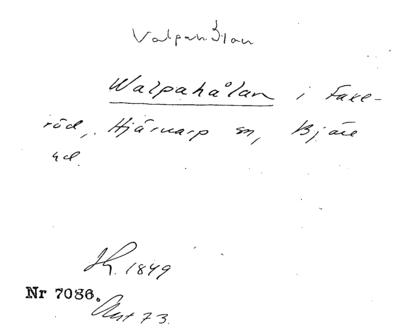 Valpahålan
Walpahålan i Faxe-
röd, Hjärnarp sn, Bjäre
hd.
1849
Nr 7086.
Avt 73.